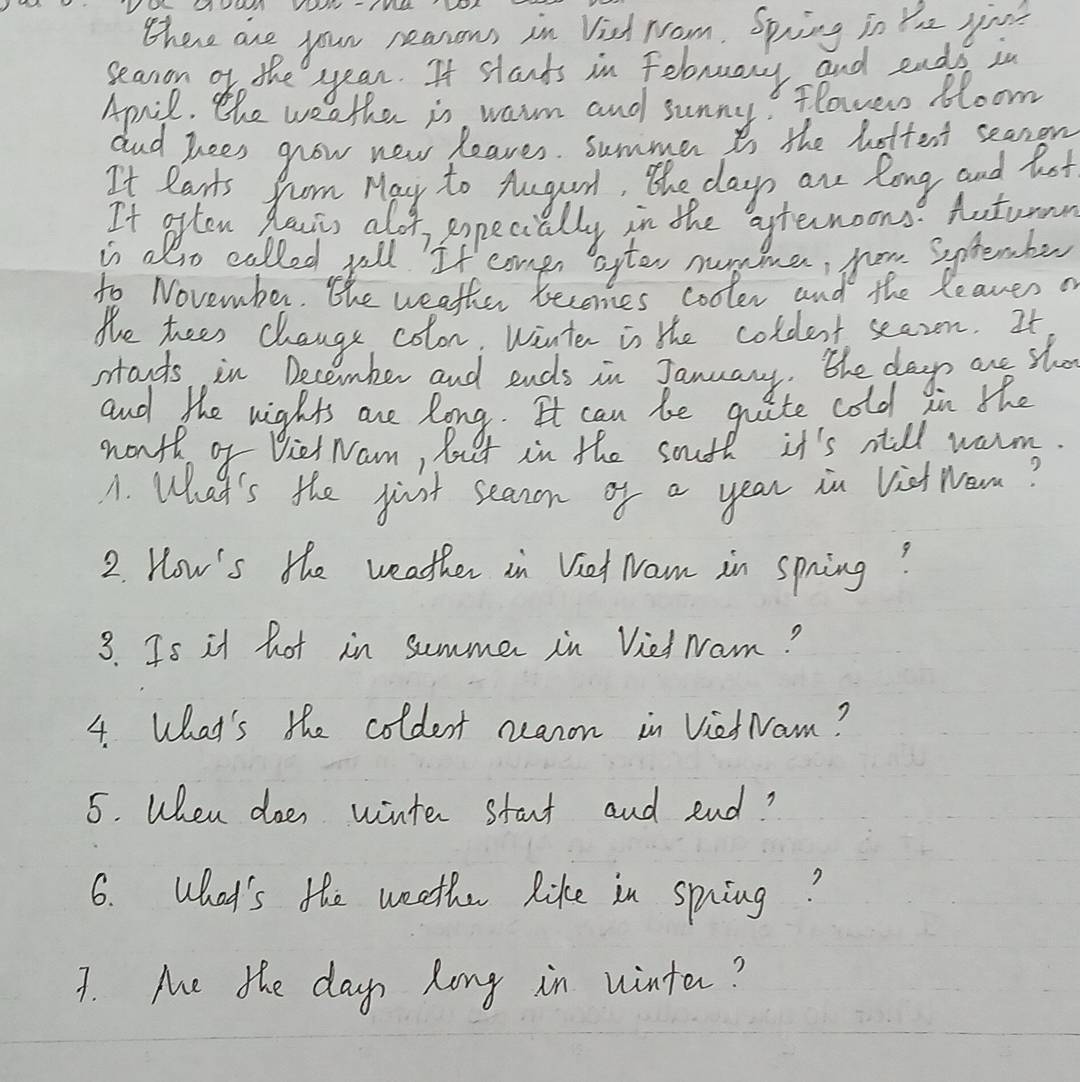 There are four seasons in Viet Nam. Spring is the first
season of the year. It starts in February and ends in
April. The weather is warm and sunny. Flowers bloom
and trees grow new leaves. Summer is the hottest season
It lasts from May to August. The days are long and hot.
It often rains alot, especially in the afternoons. Autumn
is also called fall. It comes after summer, from September
to November. The weather becomes cooler and the leaves on
the trees change color. Winter is the coldest season. It
starts in December and ends in January. The days are
and the nights are long. It can be quite cold in the
north of Viet Nam, but in the south it's still warm.
1. What's the first season of a year in Viet Nam?
2. How's the weather in Viet Nam in spring?
3. Is it hot in summer in Viet Nam?
4. What's the coldest season in Viet Nam?
5. When does winter start and end?
6. What's the weather like in spring?
7. Are the days long in winter?